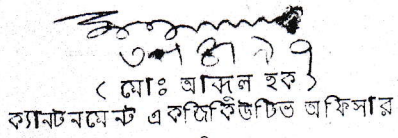 ( মোঃ আব্দুল হক )
ক্যানটনমেন্ট একজিকিউটিভ অফিসার